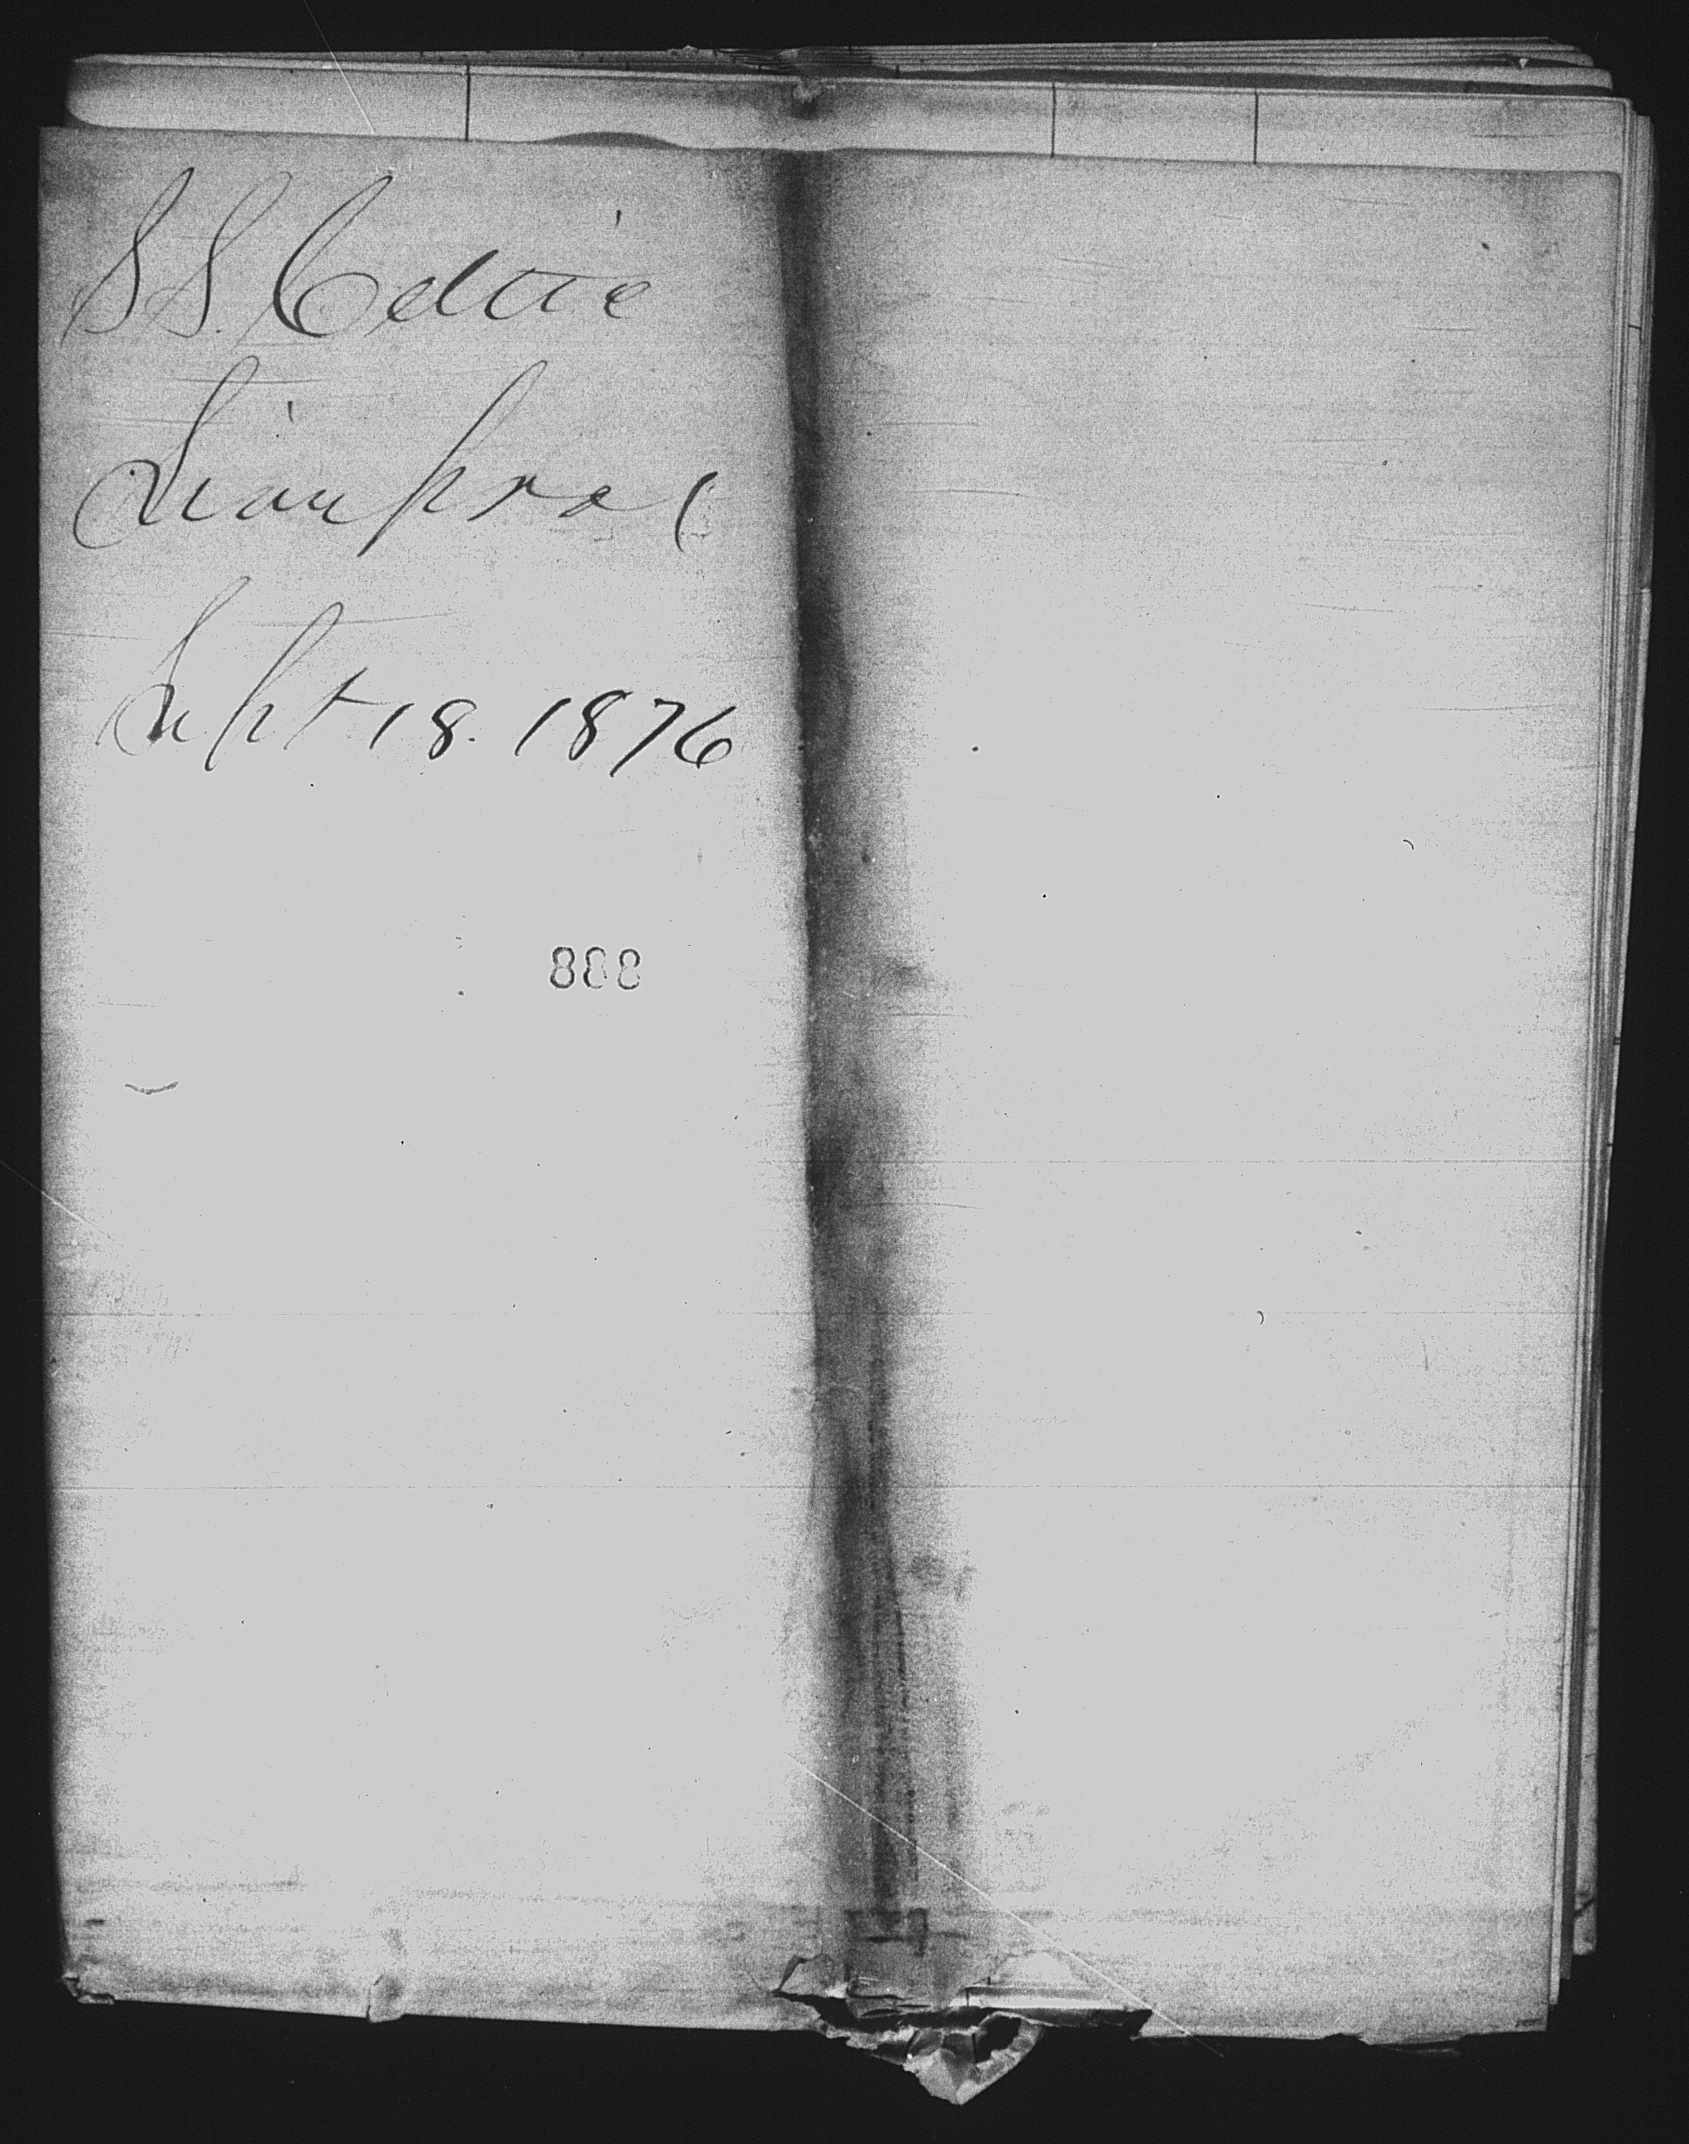 SS. Celtic
Liverpool
Sept 18. 1876
888